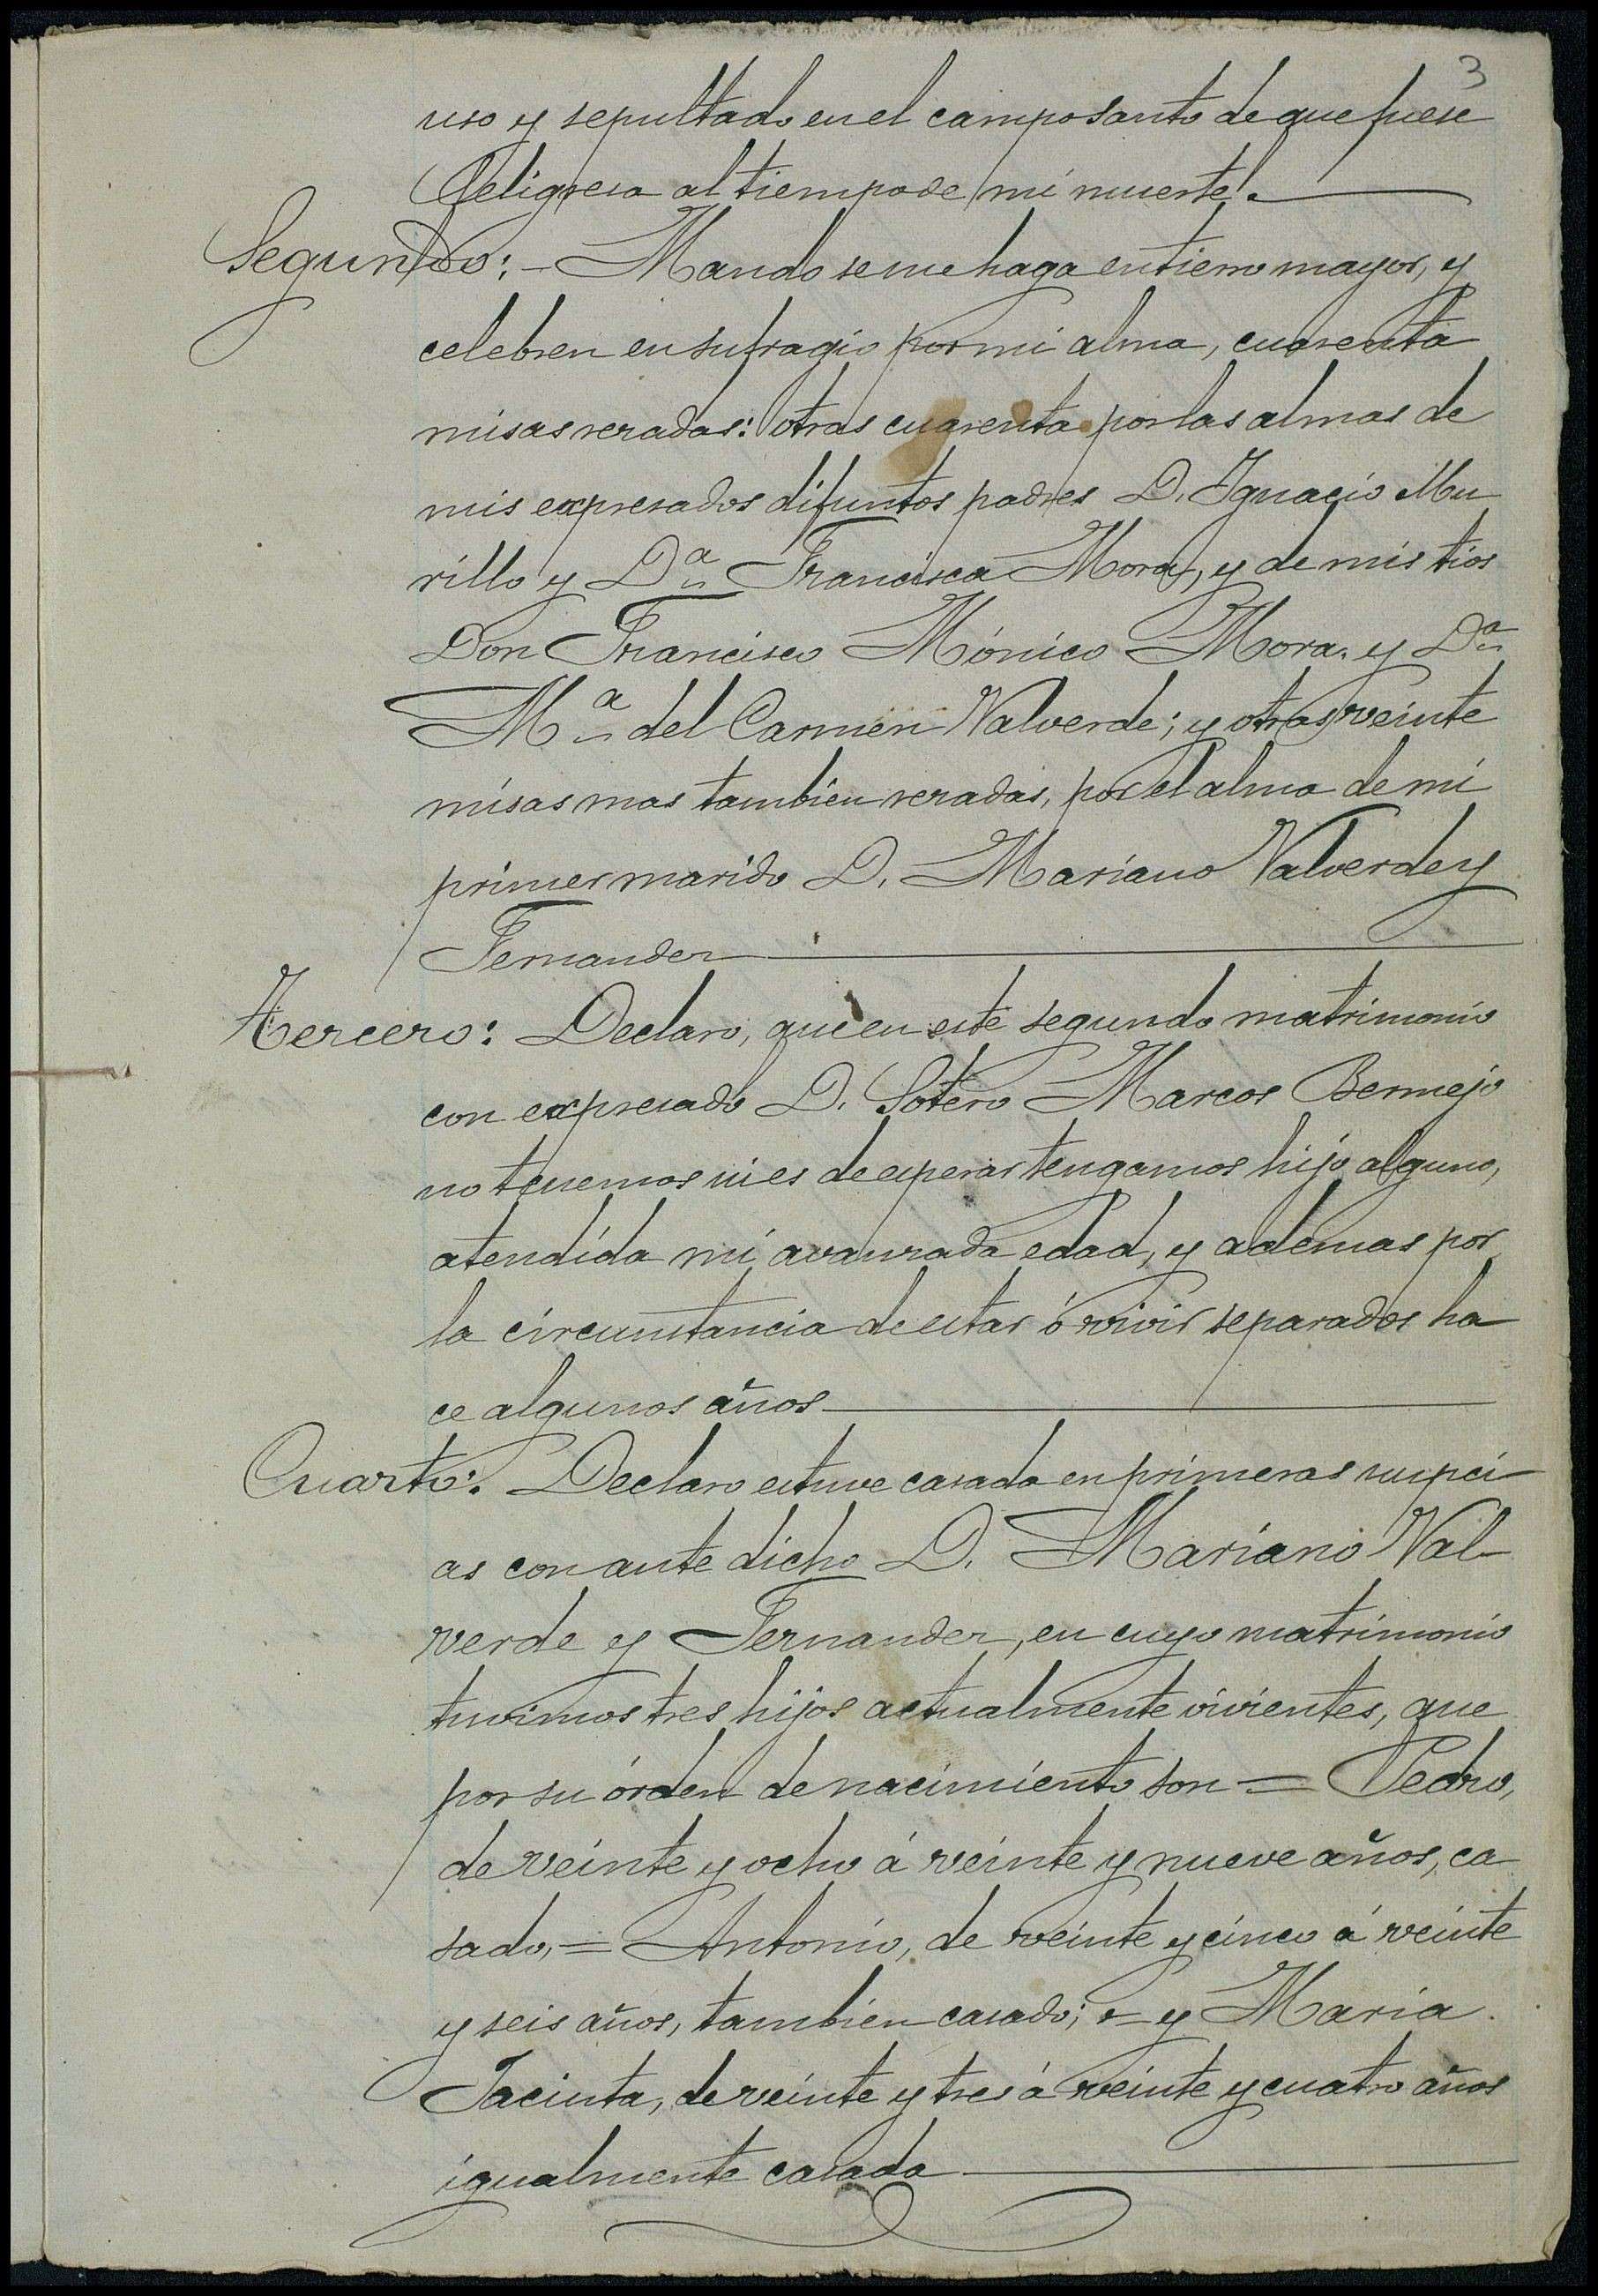 3
uso y sepultado en el campo santo de que fuese
feligresa al tiempo de mi muerte.
Segundo: - Mando se me haga entierro mayor, y
celebren en sufragio por mi alma, cuarenta
misas rezadas: otras cuarenta por las almas de
mis expresados difuntos padres D. Ignacio Mu
rillo y Dª Francisca Mora, y de mis tios
Don Francisco Mónico Mora, y Dª
Mª del Carmen Valverde; y otras veinte
misas mas tambien rezadas, por el alma de mi
primer marido D. Mariano Valverde y
Fernandez
Tercero: Declaro, que en este segundo matrimonio
con expresado D. Sotero Marcos Bermejo
no tenemos ni es de esperar tengamos hijo alguno,
atendida mi avanzada edad, y ademas por
la circunstancia de estar ó vivir separados ha
ce algunos años
Cuarto: Declaro estuve casada en primeras nupci
as con ante dicho D. Mariano Val-
verde y Fernandez, en cuyo matrimonio
tuvimos tres hijos actualmente vivientes, que
por su órden de nacimiento son = Pedro,
de veinte y ocho á veinte y nueve años, ca
sado, = Antonio, de veinte y cinco á veinte
y seis años, tambien casado; = y Maria
Jacinta, de veinte y tres á veinte y cuatro años
igualmente casada